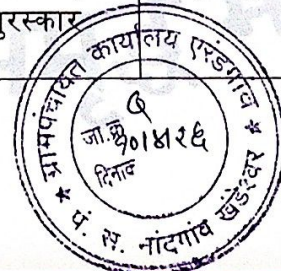 पुरस्कार
ग्रामपंचायत कार्यालय एरंडगाव
जा.क्र
दिनांक
★ पं. स. नांदगांव खंडेश्वर ★